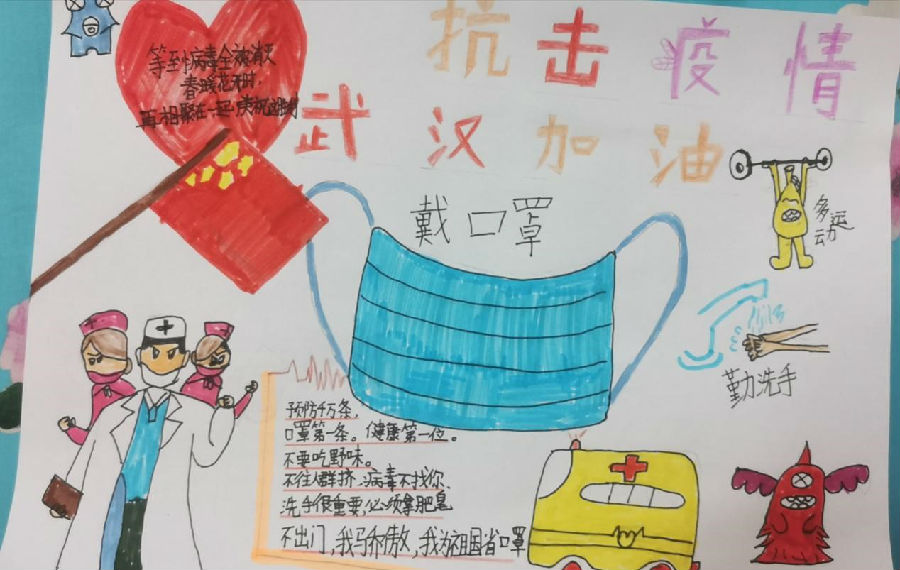 抗击疫情
等到病毒全被消灭
春暖花开时,
再相聚在一起
武汉加油
戴口罩
多运动
勤洗手
预防千万条,
口罩第一条。健康第一位。
不要吃野味。
不往人群挤,病毒不找你、
洗手很重要,必须拿肥皂
不出门,我骄傲,我为祖国省口罩